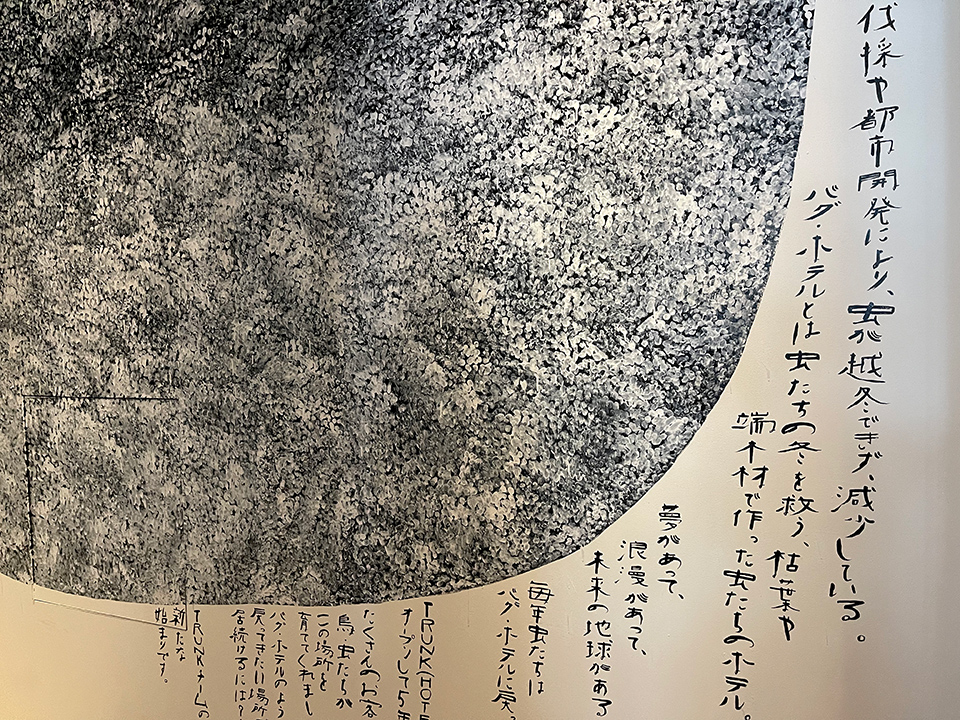 伐採や都市開発により、虫が越冬できず、減少している。
バグ・ホテルとは虫たちの冬を救う、枯葉や
端木材で作った虫たちのホテル。
夢があって、
浪漫があって、
未来の地球がある
毎年虫たちは
バグ・ホテルに戻っ
TRUNK(HOTE
オープンして5年
たくさんのお客
鳥、虫たちが
この場所を
育ててくれまし
バグ・ホテルのよう
戻ってきたい場所
居続けるには?
TRUNKチームの
新たな
始まりです。